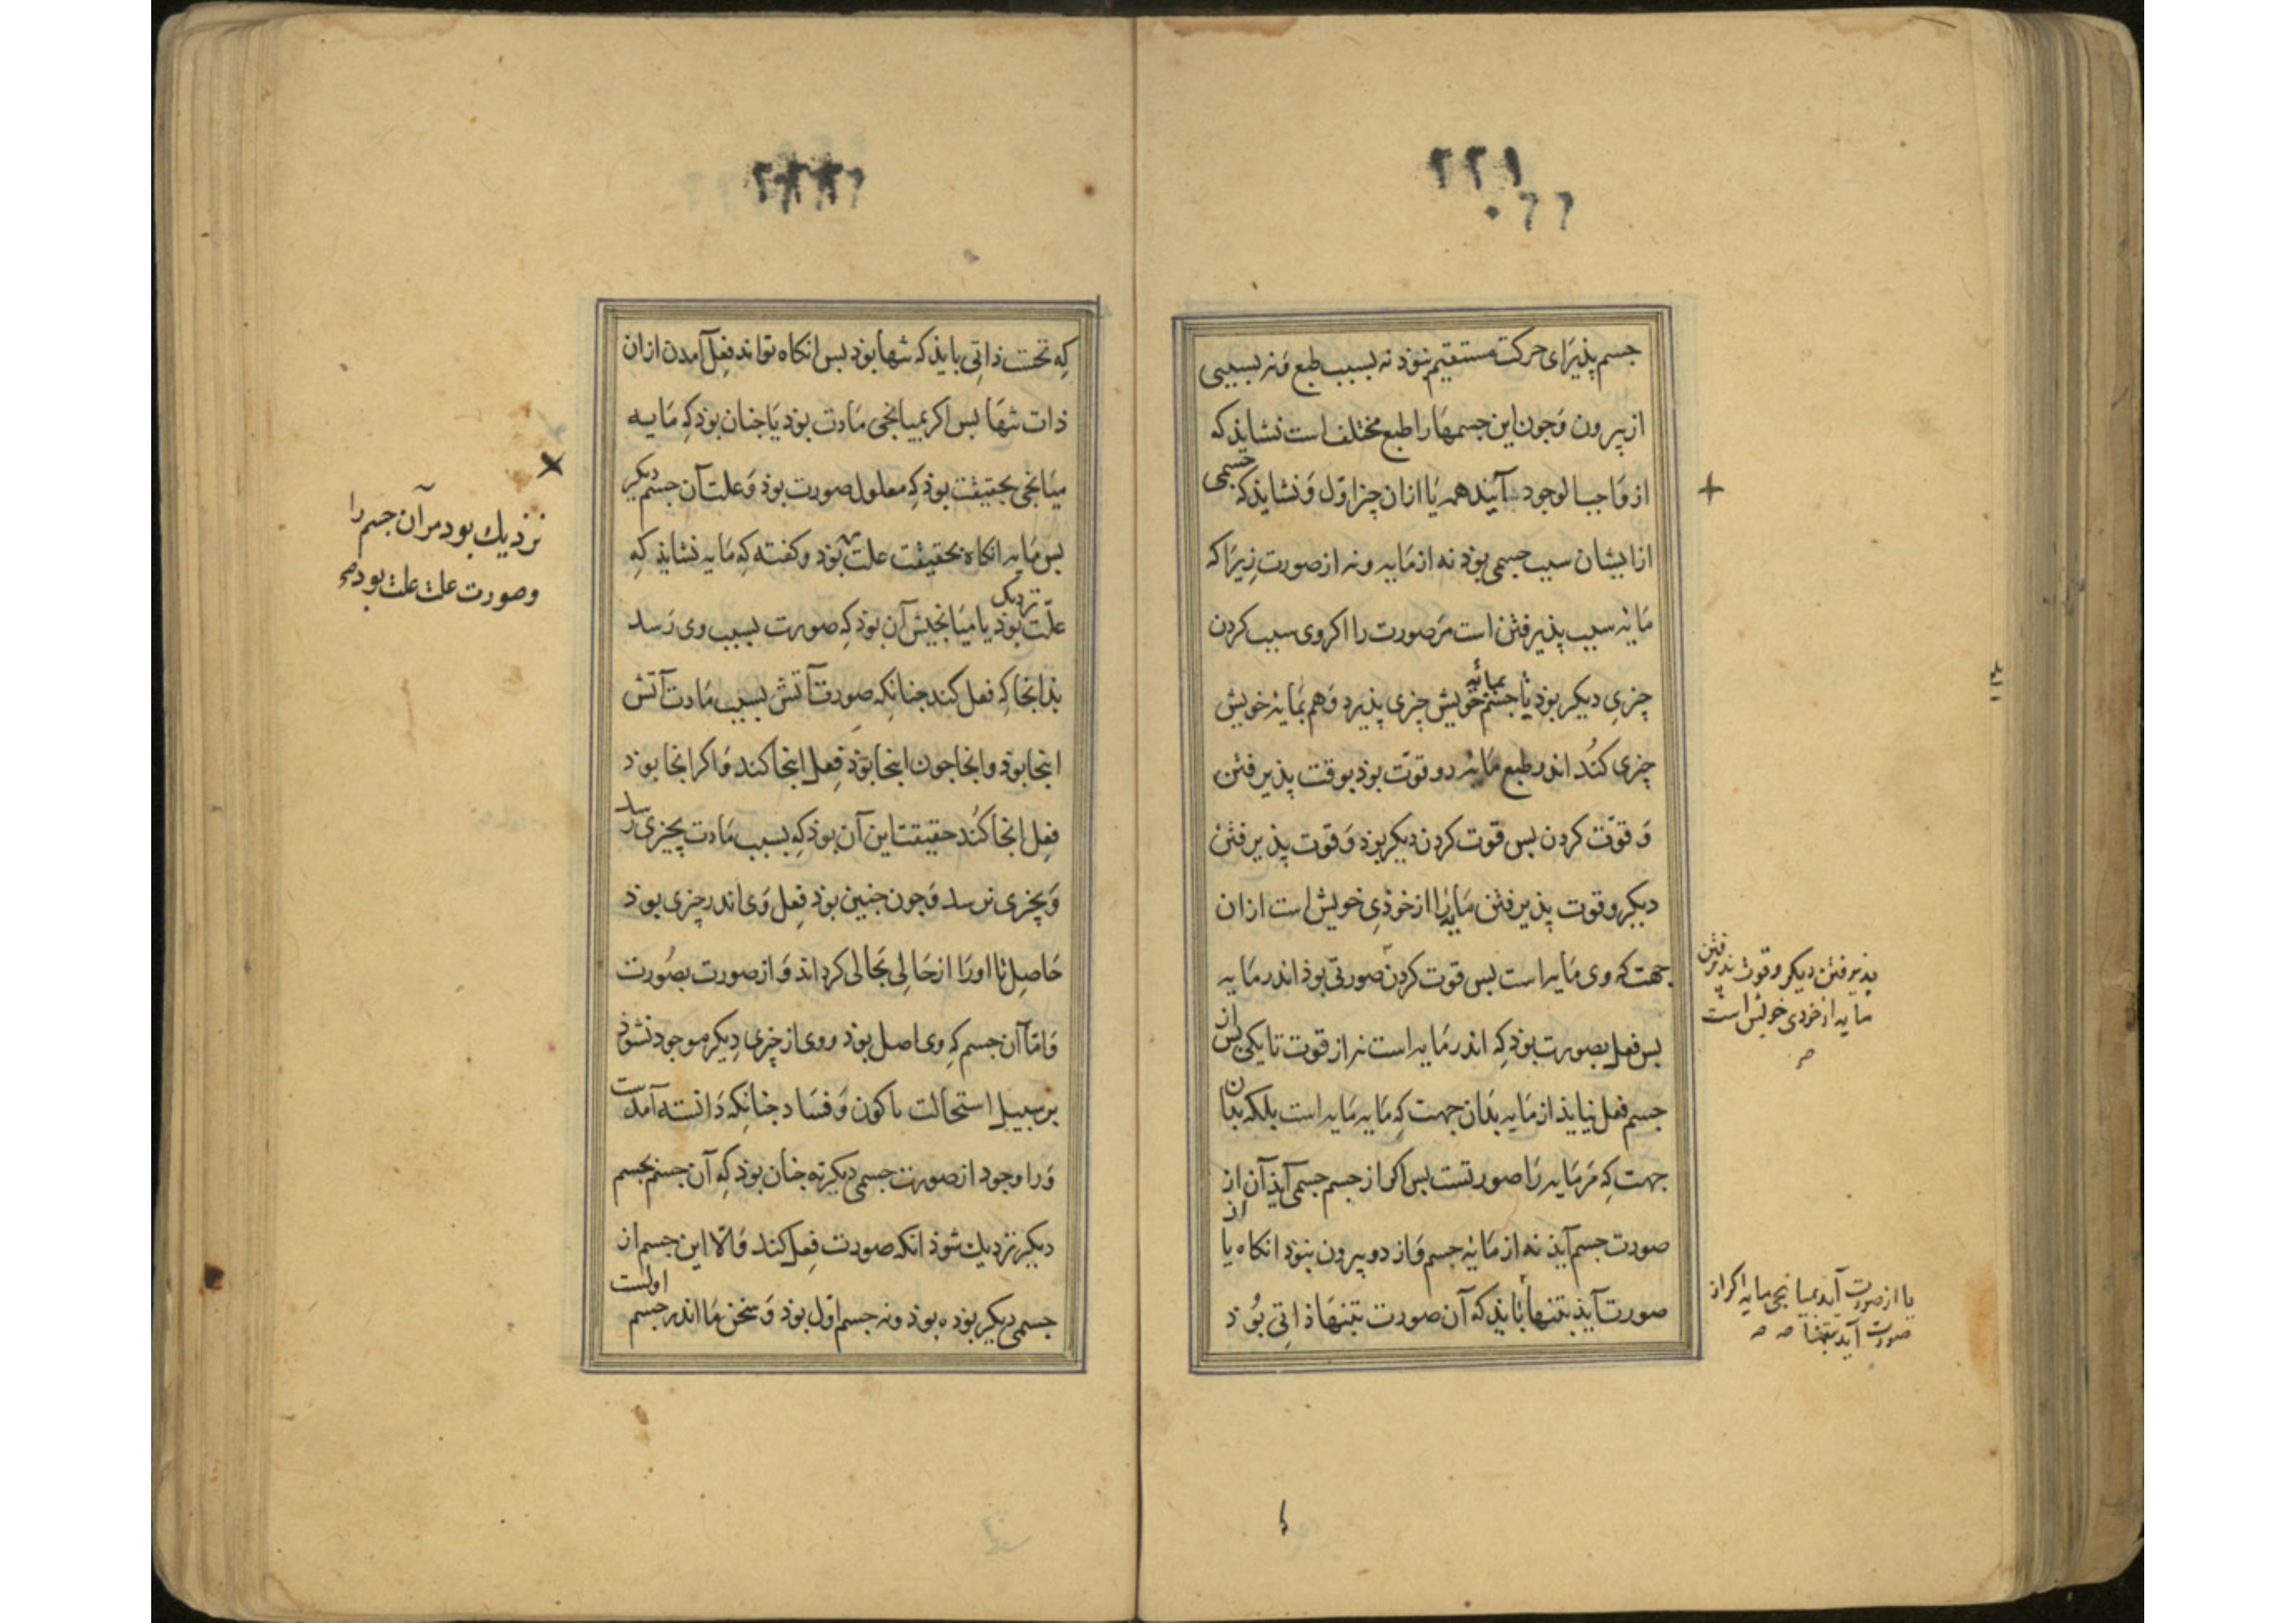 ۲۲۱
جسم پذیرای حرکت مستقیم نبوذ نه بسبب طبع و نه بسببی
از بیرون و جون این جسمها را طبع مختلف است نشایذ که
از واجب الوجود آیند همه یا ازان چیز اول و نشایذ که جسمی
ازایشان سبب جسمی بوذ نه از مایه و نه از صورت زیرا که
مایه سبب پذیرفتن است مر صورت را اکر وی سبب کردن
چیزی دیکر بوذ تا جسم بمایه خویش چیزی پذیرد و هم بمایه خویش
چیزی کند اندر طبع مایه دو قوت بوذ بوقت پذیرفتن
و قوت کردن بس قوت کردن دیکر بوذ و قوت پذیرفتن
دیکر و قوت پذیرفتن مایه را از خوذی خویش است ازان
جهت که وی مایه است بس قوت کردن صورتی بوذ اندر مایه
بس فعل بصورت بوذ که اندر مایه است نه از قوت تا یکی بس از
جسم فعل نیایذ از مایه بذان جهت که مایه مایه است بلکه بذان
جهت که مر مایه را صورتست بس اکر از جسم جسمی آیذ آن از
صورت جسم آیذ نه از مایه جسم و از دو بیرون نبوذ انکاه یا از
صورت آیذ بتنها بایذ که آن صورت بتنها ذاتی بوذ
پذیرفتن دیکر و قوت پذیرفتن
مایه از خودی خویش است
یا از صورت آید بمیانجی مایه اکر از
صورت آید بتنها صه صه
که نخست ذاتی بایذ که تنها بوذ بس انکاه تواند فعل آمدن ازان
ذات تنها بس اکر بمیانجی مادت بوذ یا جنان بوذ که مایه
میانجی بحقیقت بوذ که معلول صورت بوذ و علت آن جسم دیکر
بس مایه انکاه بحقیقت علت بوذ و کفته که مایه نشایذ که
علت نزدیک بوذ یا میانجیش آن بوذ که صورت بسبب وی رسد
بذانجا که فعل کند جنانکه صورت آتش بسبب مادت آتش
اینجا بوذ وانجا جون اینجا بوذ فعل اینجا کند و اکر انجا بوذ
فعل انجا کند حقیقت این آن بوذ که بسبب مادت بچیزی رسد
و بچیزی نرسد و جون جنین بوذ فعل وی اندر چیزی بوذ
حاصل تا اورا از حالی بحالی کرداند و از صورت بصورت
و اما آن جسم که وی اصل بوذ و وی از چیزی دیکر موجود نشوذ
بر سبیل استحالت یا کون و فساد جنانکه دانسته آمدست
و را وجود از صورت جسمی دیکر نه جنان بوذ که آن جسم بجسم
دیکر نزدیك شوذ انکه صورت فعل کند والا این جسم از
جسمی دیکر بوذه بوذ و نه جسم اول بوذ و سخن ما اندر جسم اولست
نزدیك بود مر آن جسم را
وصورت علت علت بود